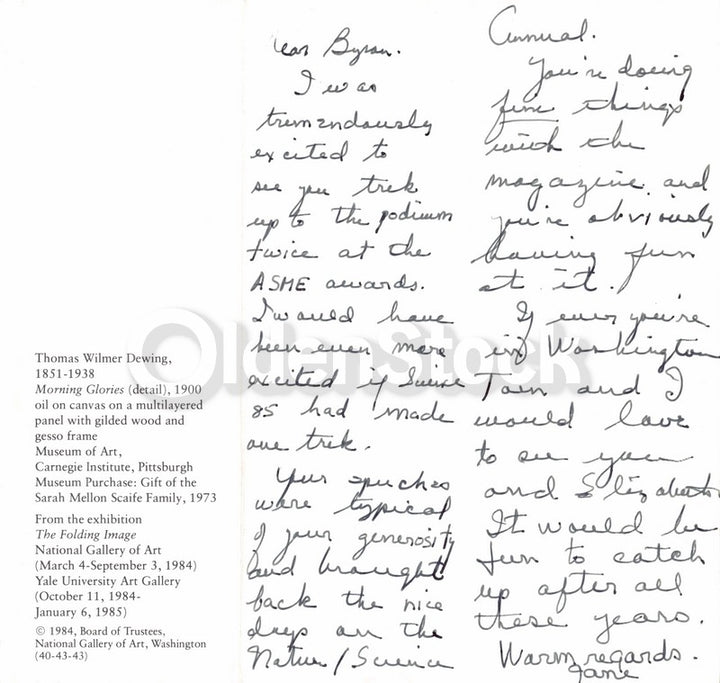 Thomas Wilmer Dewing,
1851-1938
Morning Glories (detail), 1900
oil on canvas on a multilayered
panel with gilded wood and
gesso frame
Museum of Art,
Carnegie Institute, Pittsburgh
Museum Purchase: Gift of the
Sarah Mellon Scaife Family, 1973
From the exhibition
The Folding Image
National Gallery of Art
(March 4-September 3, 1984)
Yale University Art Gallery
(October 11, 1984-
January 6, 1985)
© 1984, Board of Trustees,
National Gallery of Art, Washington
(40-43-43)
Dear Byron.
I was
tremendously
excited to
see you trek
up to the podium
twice at the
ASME awards.
I would have
been even more
excited if Science
85 had made
one trek.
Your speeches
were typical
of your generosity
and brought
back the nice
days on the
Nature/Science
Annual.
You're doing
fine things
with the
magazine and
you're obviously
having fun
at it.
If ever you're
in Washington
Tom and I
would love
to see you
and Elizabeth
It would be
fun to catch
up after all
these years.
Warm regards.
Jane
OldenStock